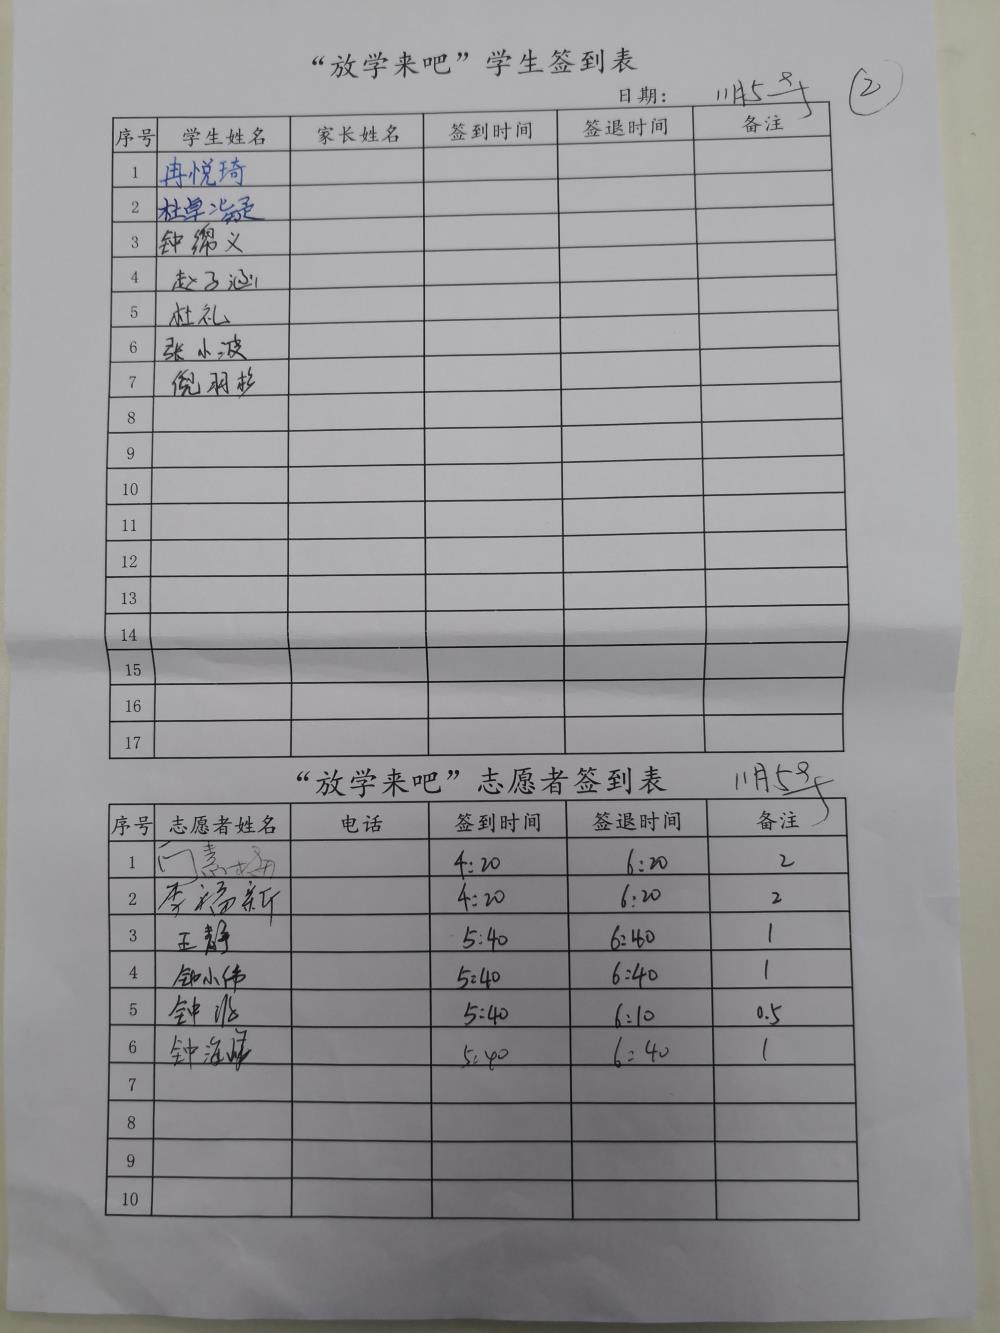 “放学来吧”学生签到表
日期： 11月5号 ②
序号 学生姓名 家长姓名 签到时间 签退时间 备注
1 冉悦琦
2 杜卓
3 钟绵义
4 赵子涵
5 杜礼
6 张小波
7 倪羽杉
8
9
10
11
12
13
14
15
16
17
“放学来吧”志愿者签到表 11月5号
序号 志愿者姓名 电话 签到时间 签退时间 备注
1 4:20 6:20 2
2 李福新 4:20 6:20 2
3 王静 5:40 6:40 1
4 钟小伟 5:40 6:40 1
5 钟 5:40 6:10 0.5
6 钟海 5:40 6:40 1
7
8
9
10